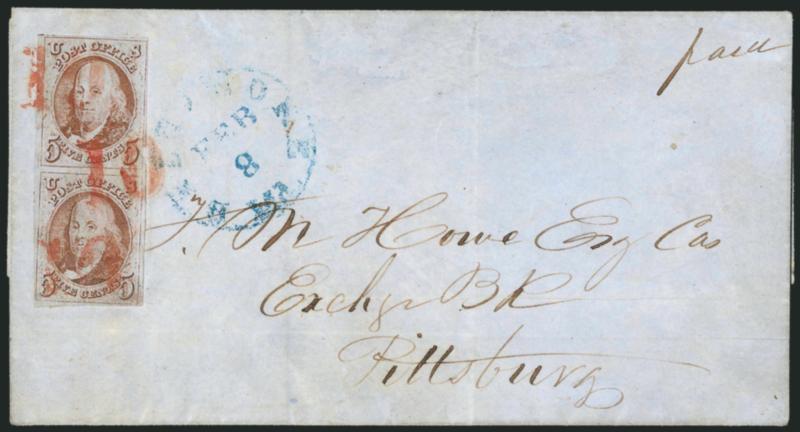 paid
U S
POST OFFICE
5 FIVE CENTS 5
U S
POST OFFICE
5 FIVE CENTS 5
FEB
8
T. M Howe Esq Cas
Exchge BK
Pittsburg